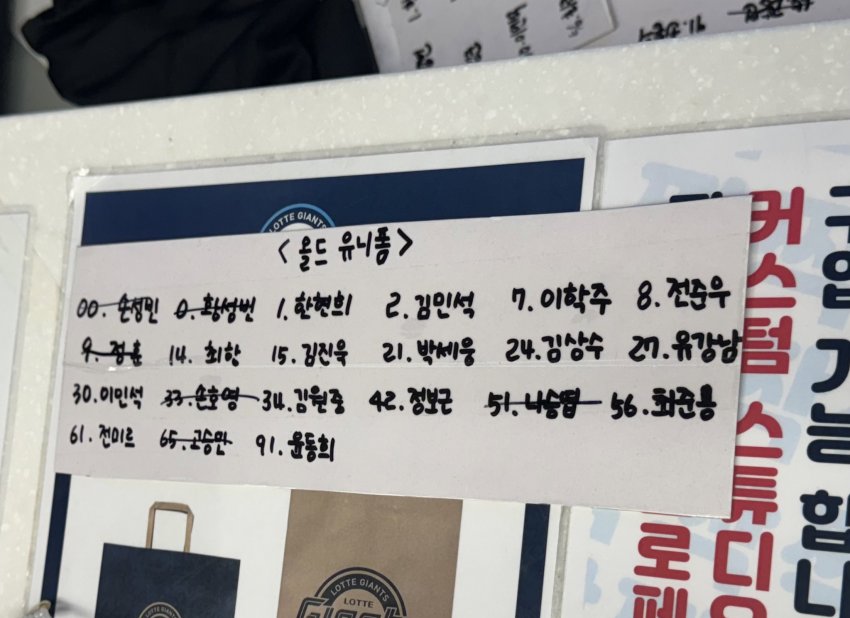 LOTTE GIANTS
<올드 유니폼>
00. 손성빈 0. 황성빈 1. 한현희 2. 김민석 7. 이학주 8. 전준우
9. 정훈 14. 최항 15. 김진욱 21. 박세웅 24. 김상수 27. 유강남
30. 이민석 33. 손호영 34. 김원중 42. 정보근 51. 나승엽 56. 최준용
61. 전미르 65. 고승민 91. 윤동희
LOTTE GIANTS
LOTTE
커스텀 스튜디오
구입 가능합니
로페